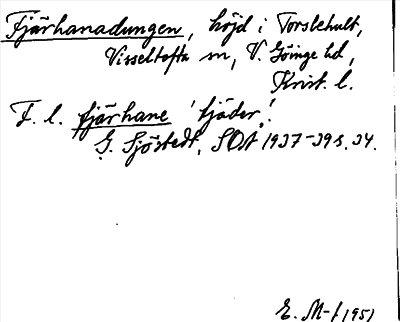 Fjärhanadungen, höjd i Torsbehult,
Visseltofta sn, V. Göinge hd,
Krist. l.
F. l. fjärhane 'tjäder'.
G. Sjöstedt, SOÅ 1937-39 s. 34.
E. M-f 1951